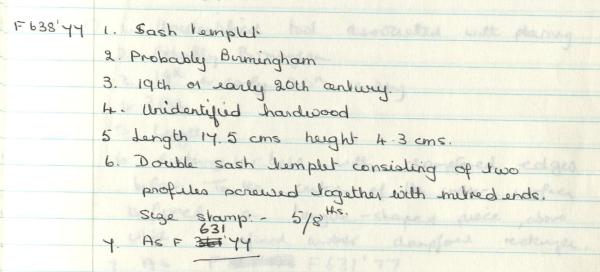 F638'77 1. Sash templet.
2. Probably Birmingham
3. 19th or early 20th century.
4. Unidentified hardwood
5 Length 17.5 cms height 4.3 cms.
6. Double sash templet consisting of two
profiles screwed together with mitred ends.
Size stamp:- 5/8ths.
7. As F 631'77